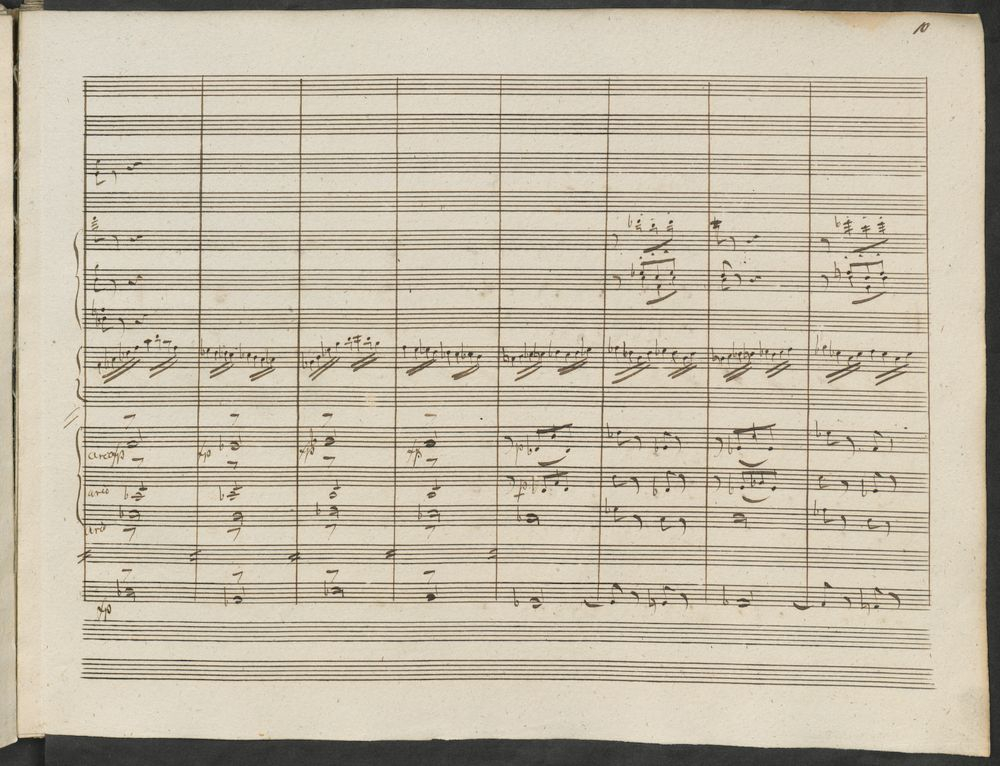 10
arco fp fp fp fp p
arco p
arco
fp